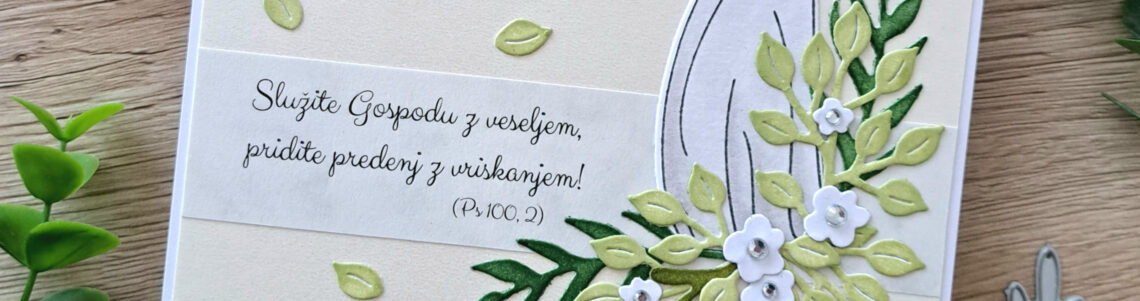 Služite Gospodu z veseljem,
pridite predenj z vriskanjem!
(Ps 100, 2)